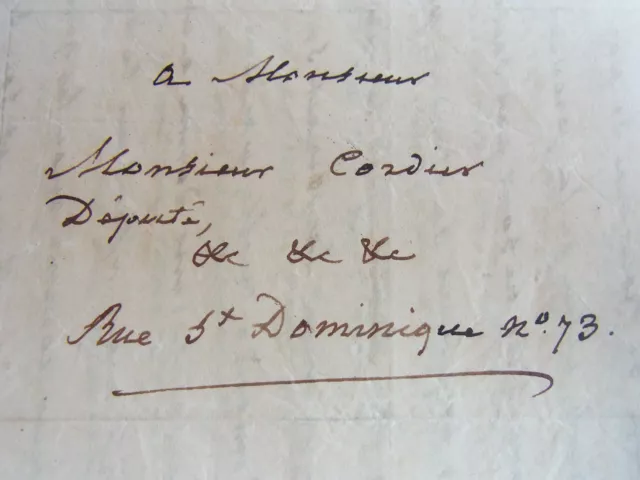 a Monsieur
Monsieur Cordier
Député,
&c &c &c
Rue St Dominique no. 73.